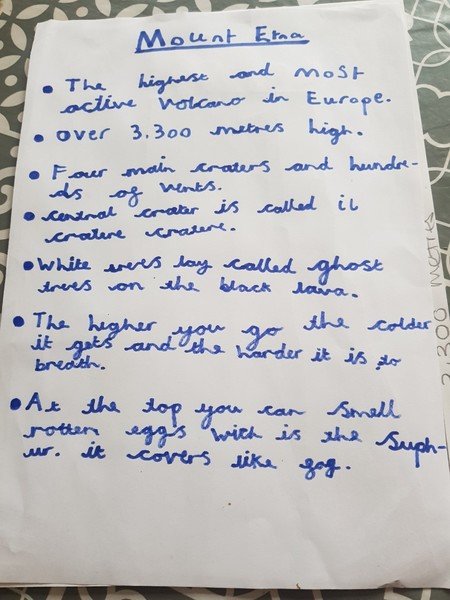 Mount Etna
• The highest and most
active volcano in Europe.
• over 3.300 metres high.
• Four main craters and hundre-
ds of vents.
• central crater is called il
cratere cratere.
• White trees lay called ghost
trees on the black lava.
• The higher you go the colder
it gets and the harder it is to
breath.
• At the top you can smell
rotten eggs with is the suph-
ur. it covers like gog.